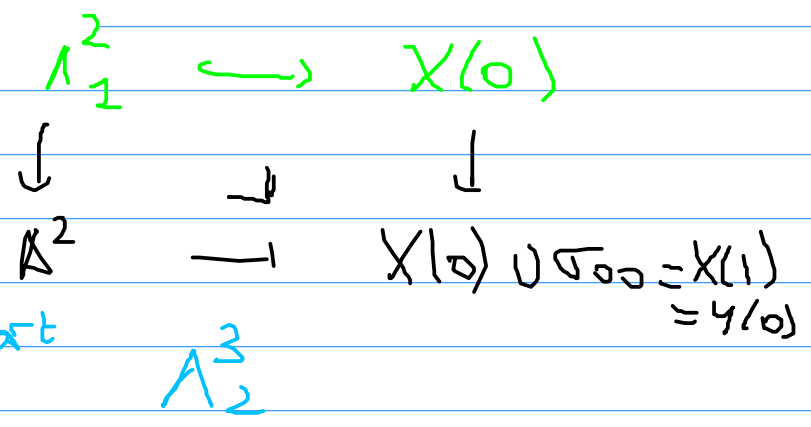 Λ²₁ ↪ X(0)
↓ ↓
Δ² → X(0) ∪ σ₀₀ = X(1)
= Y(0)
Λ³₂